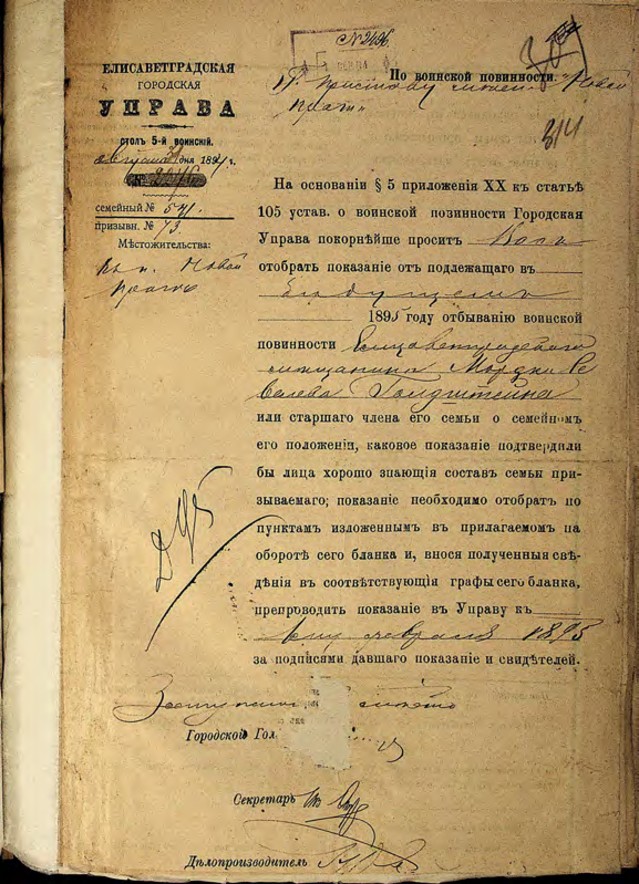 № 2496
30
314
ЕЛИСАВЕТГРАДСКАЯ
ГОРОДСКАЯ
УПРАВА
столъ 5-й воинскій.
августа 31 дня 1894 г.
семейный № 571.
призывн. № 73.
Мѣстожительства:
Новой
Прагѣ
По воинской повинности.
Г. Приставу Новой
Праги
На основаніи § 5 приложенія XX къ статьѣ
105 устав. о воинской повинности Городская
Управа покорнѣйше проситъ Васъ
отобрать показаніе отъ подлежащаго въ
будущемъ
1895 году отбыванію воинской
повинности Елисаветградскаго
мѣщанина Мордки Се
велева Голдштейна
или старшаго члена его семьи о семейномъ
его положеніи, каковое показаніе подтвердили
бы лица хорошо знающія составъ семьи при-
зываемаго; показаніе необходимо отобрать по
пунктамъ изложеннымъ въ прилагаемомъ на
оборотѣ сего бланка и, внося полученныя свѣ-
дѣнія въ соотвѣтствующія графы сего бланка,
препроводить показаніе въ Управу къ
1му февраля 1895
за подписями давшаго показаніе и свидѣтелей.
Городской Гол
Секретарь
Дѣлопроизводитель